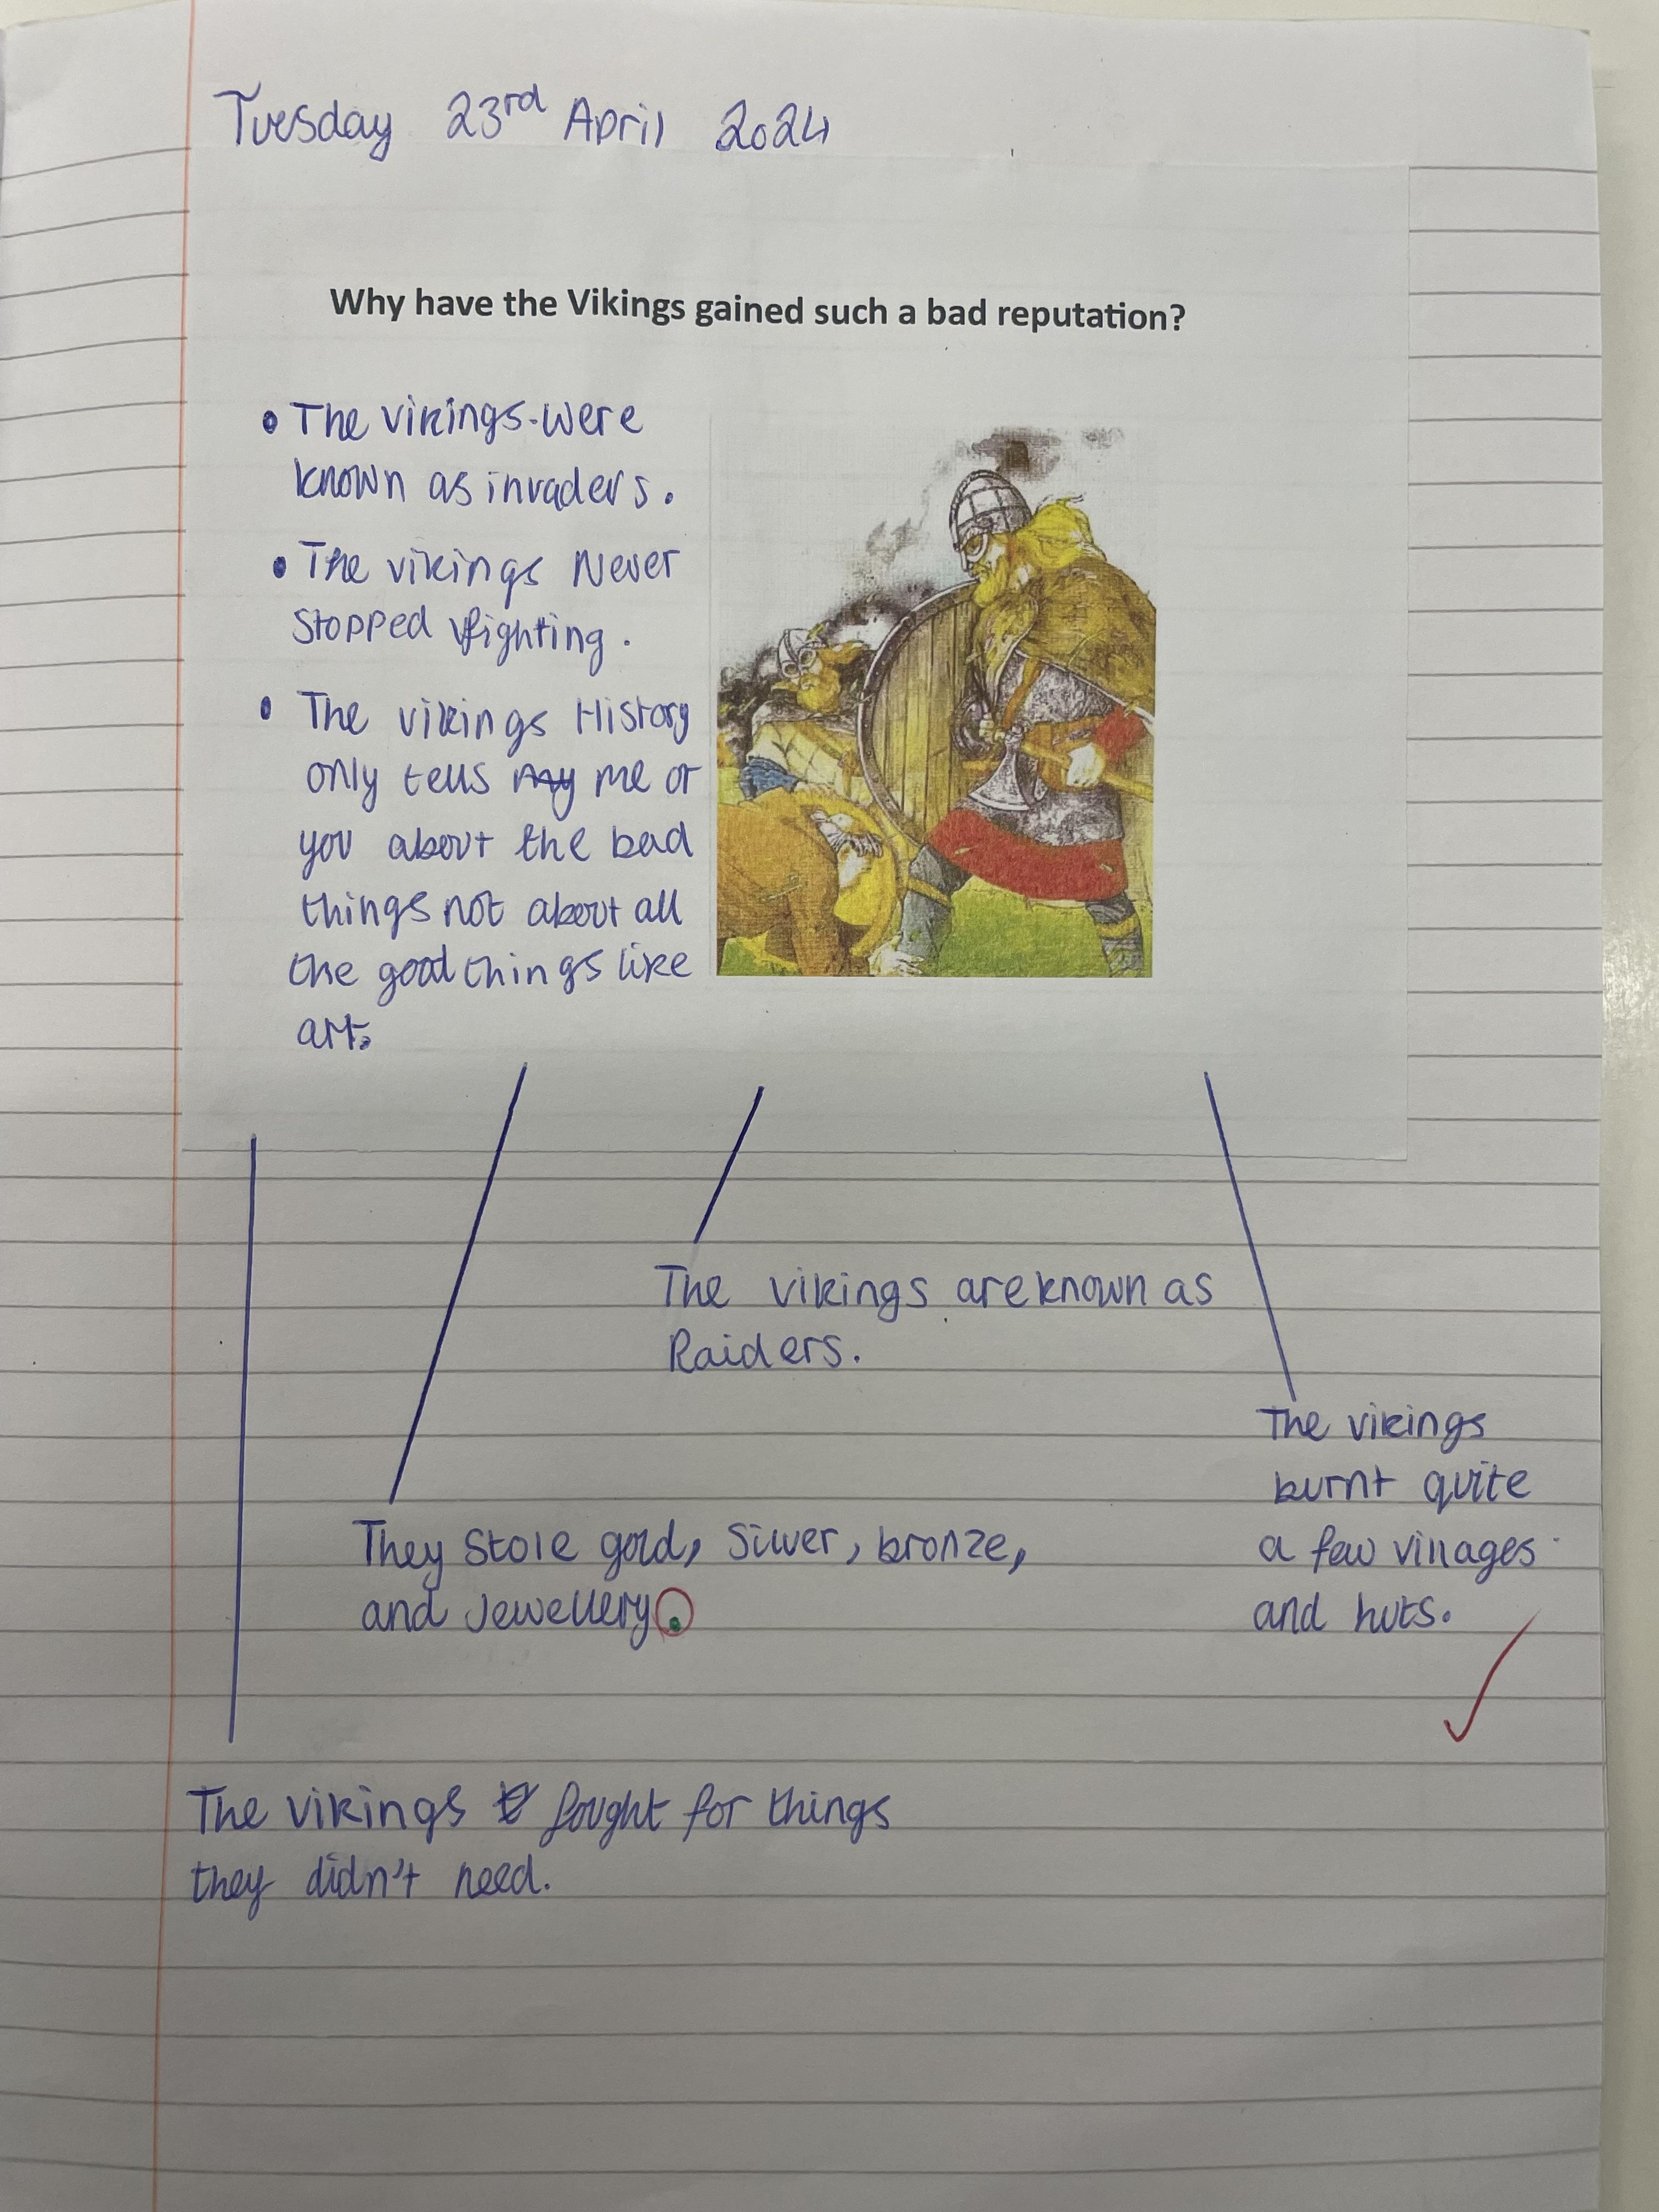 Tuesday 23rd April 2024
Why have the Vikings gained such a bad reputation?
• The vikings were
known as invaders.
• The vikings Never
stopped fighting.
• The vikings History
only tells my me or
you about the bad
things not about all
the good things like
art.
The vikings are known as
Raiders.
The vikings
burnt quite
a few villages
and huts.
They stole gold, silver, bronze,
and Jewellery.
The vikings fought for things
they didn't need.